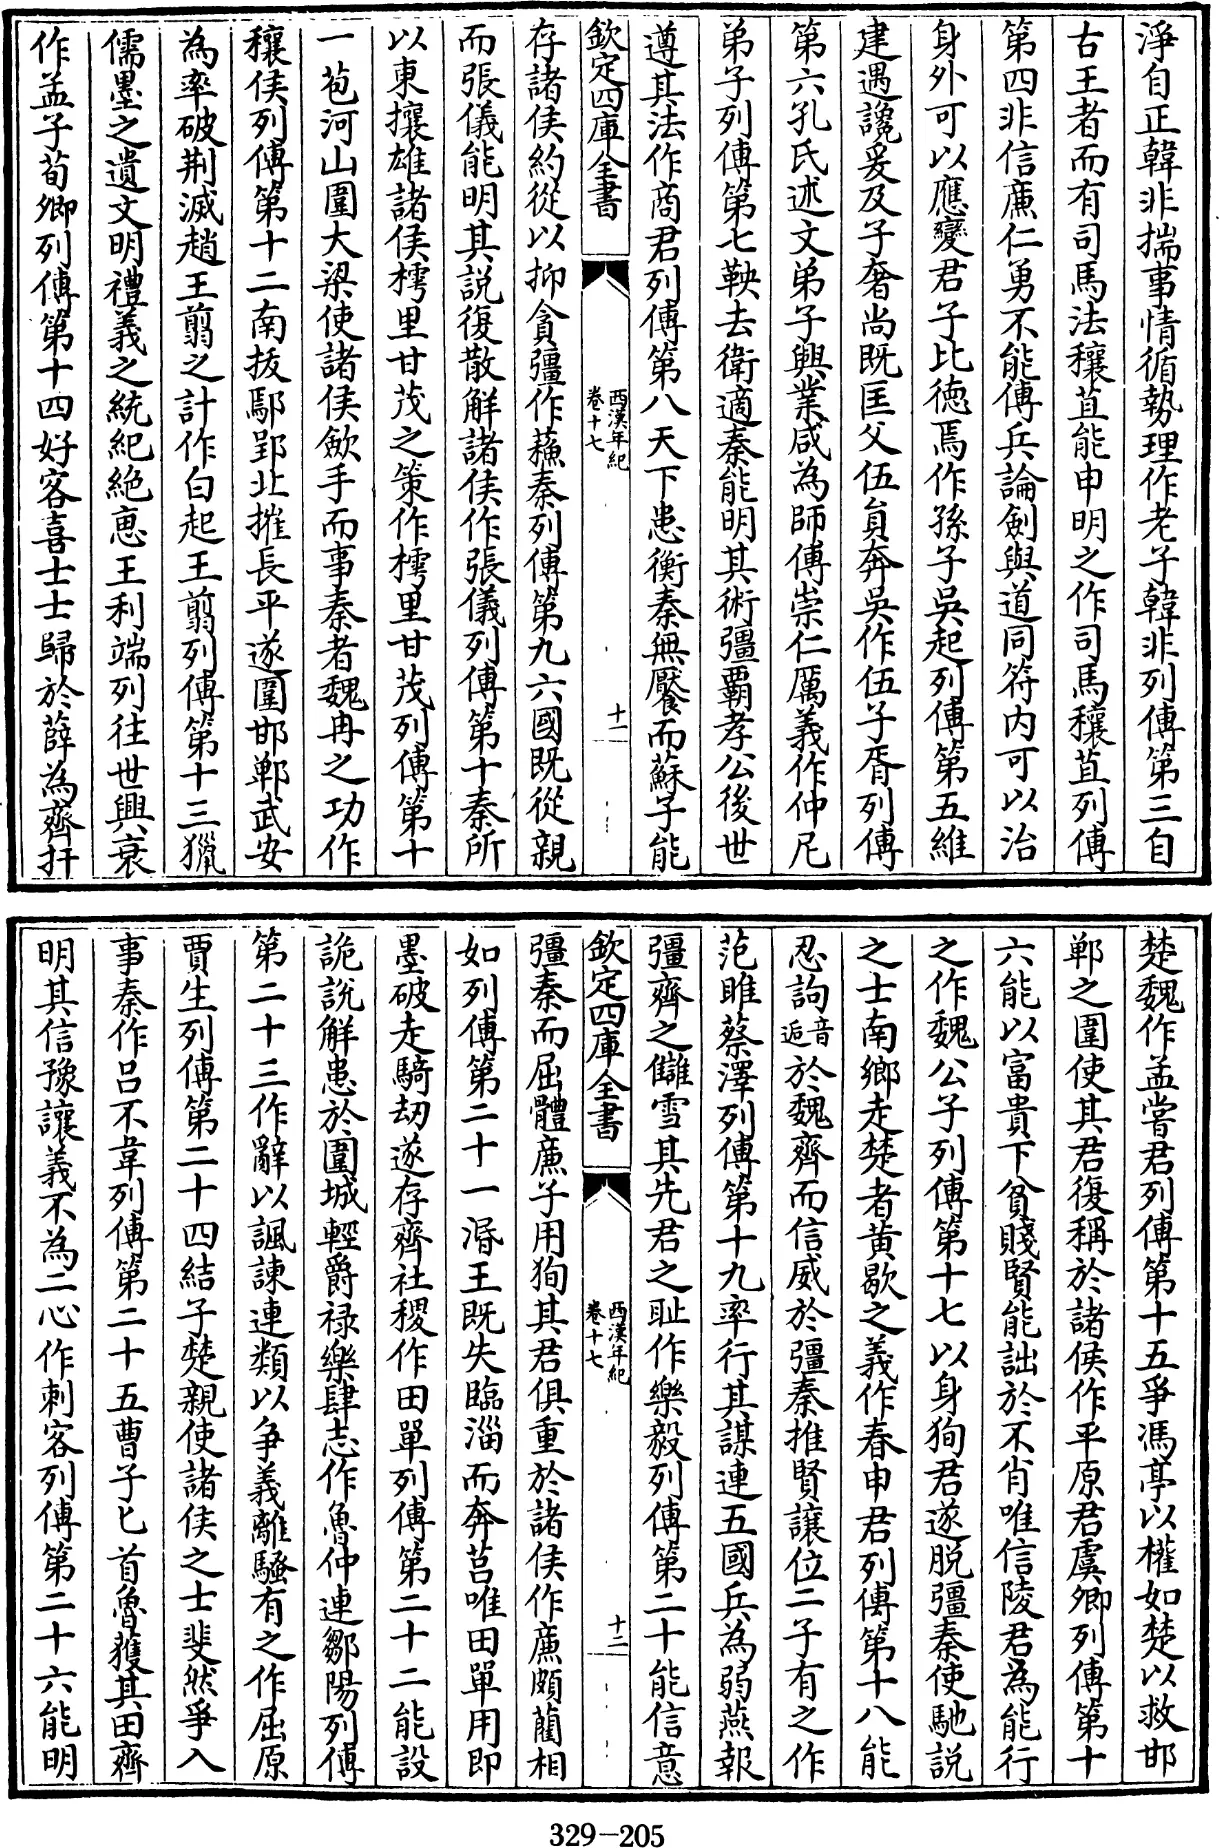 淨自正韓非揣事情循埶理作老子韓非列傳第三自
古王者而有司馬法穰苴能申明之作司馬穰苴列傳
第四非信亷仁勇不能傳兵論劍與道同符内可以治
身外可以應變君子比徳焉作孫子吳起列傳第五維
建遇讒爰及子奢尚既匡父伍員奔吳作伍子胥列傳
第六孔氏述文弟子興業咸為師傅崇仁厲義作仲尼
弟子列傳第七鞅去衛適秦能明其術彊霸孝公後世
遵其法作商君列傳第八天下患衡秦無饜而蘇子能
欽定四庫全書
西漢年紀
卷十七
十一
存諸侯約從以抑貪彊作蘓秦列傳第九六國既從親
而張儀能明其說復散解諸侯作張儀列傳第十秦所
以東攘雄諸侯樗里甘茂之策作樗里甘茂列傳第十
一苞河山圍大梁使諸侯歛手而事秦者魏冉之功作
穰侯列傳第十二南拔鄢郢北摧長平遂圍邯鄲武安
為率破荆滅趙王翦之計作白起王翦列傳第十三獵
儒墨之遺文明禮義之統紀絶惠王利端列往世興衰
作孟子荀卿列傳第十四好客喜士士歸於薛為齊扞
楚魏作孟嘗君列傳第十五爭馮亭以權如楚以救邯
鄲之圍使其君復稱於諸侯作平原君虞卿列傳第十
六能以富貴下貧賤賢能詘於不肖唯信陵君為能行
之作魏公子列傳第十七以身狥君遂脱彊秦使馳說
之士南鄉走楚者黄歇之義作春申君列傳第十八能
忍訽音逅於魏齊而信威於彊秦推賢讓位二子有之作
范雎蔡澤列傳第十九率行其謀連五國兵為弱燕報
彊齊之讎雪其先君之耻作樂毅列傳第二十能信意
欽定四庫全書
西漢年紀
卷十七
十二
彊秦而屈體亷子用狥其君俱重於諸侯作亷頗藺相
如列傳第二十一湣王既失臨淄而奔莒唯田單用即
墨破走騎劫遂存齊社稷作田單列傳第二十二能設
詭說解患於圍城輕爵禄樂肆志作魯仲連鄒陽列傳
第二十三作辭以諷諫連類以争義離騷有之作屈原
賈生列傳第二十四結子楚親使諸侯之士斐然爭入
事秦作吕不韋列傳第二十五曹子匕首魯獲其田齊
明其信豫讓義不為二心作刺客列傳第二十六能明
329-205